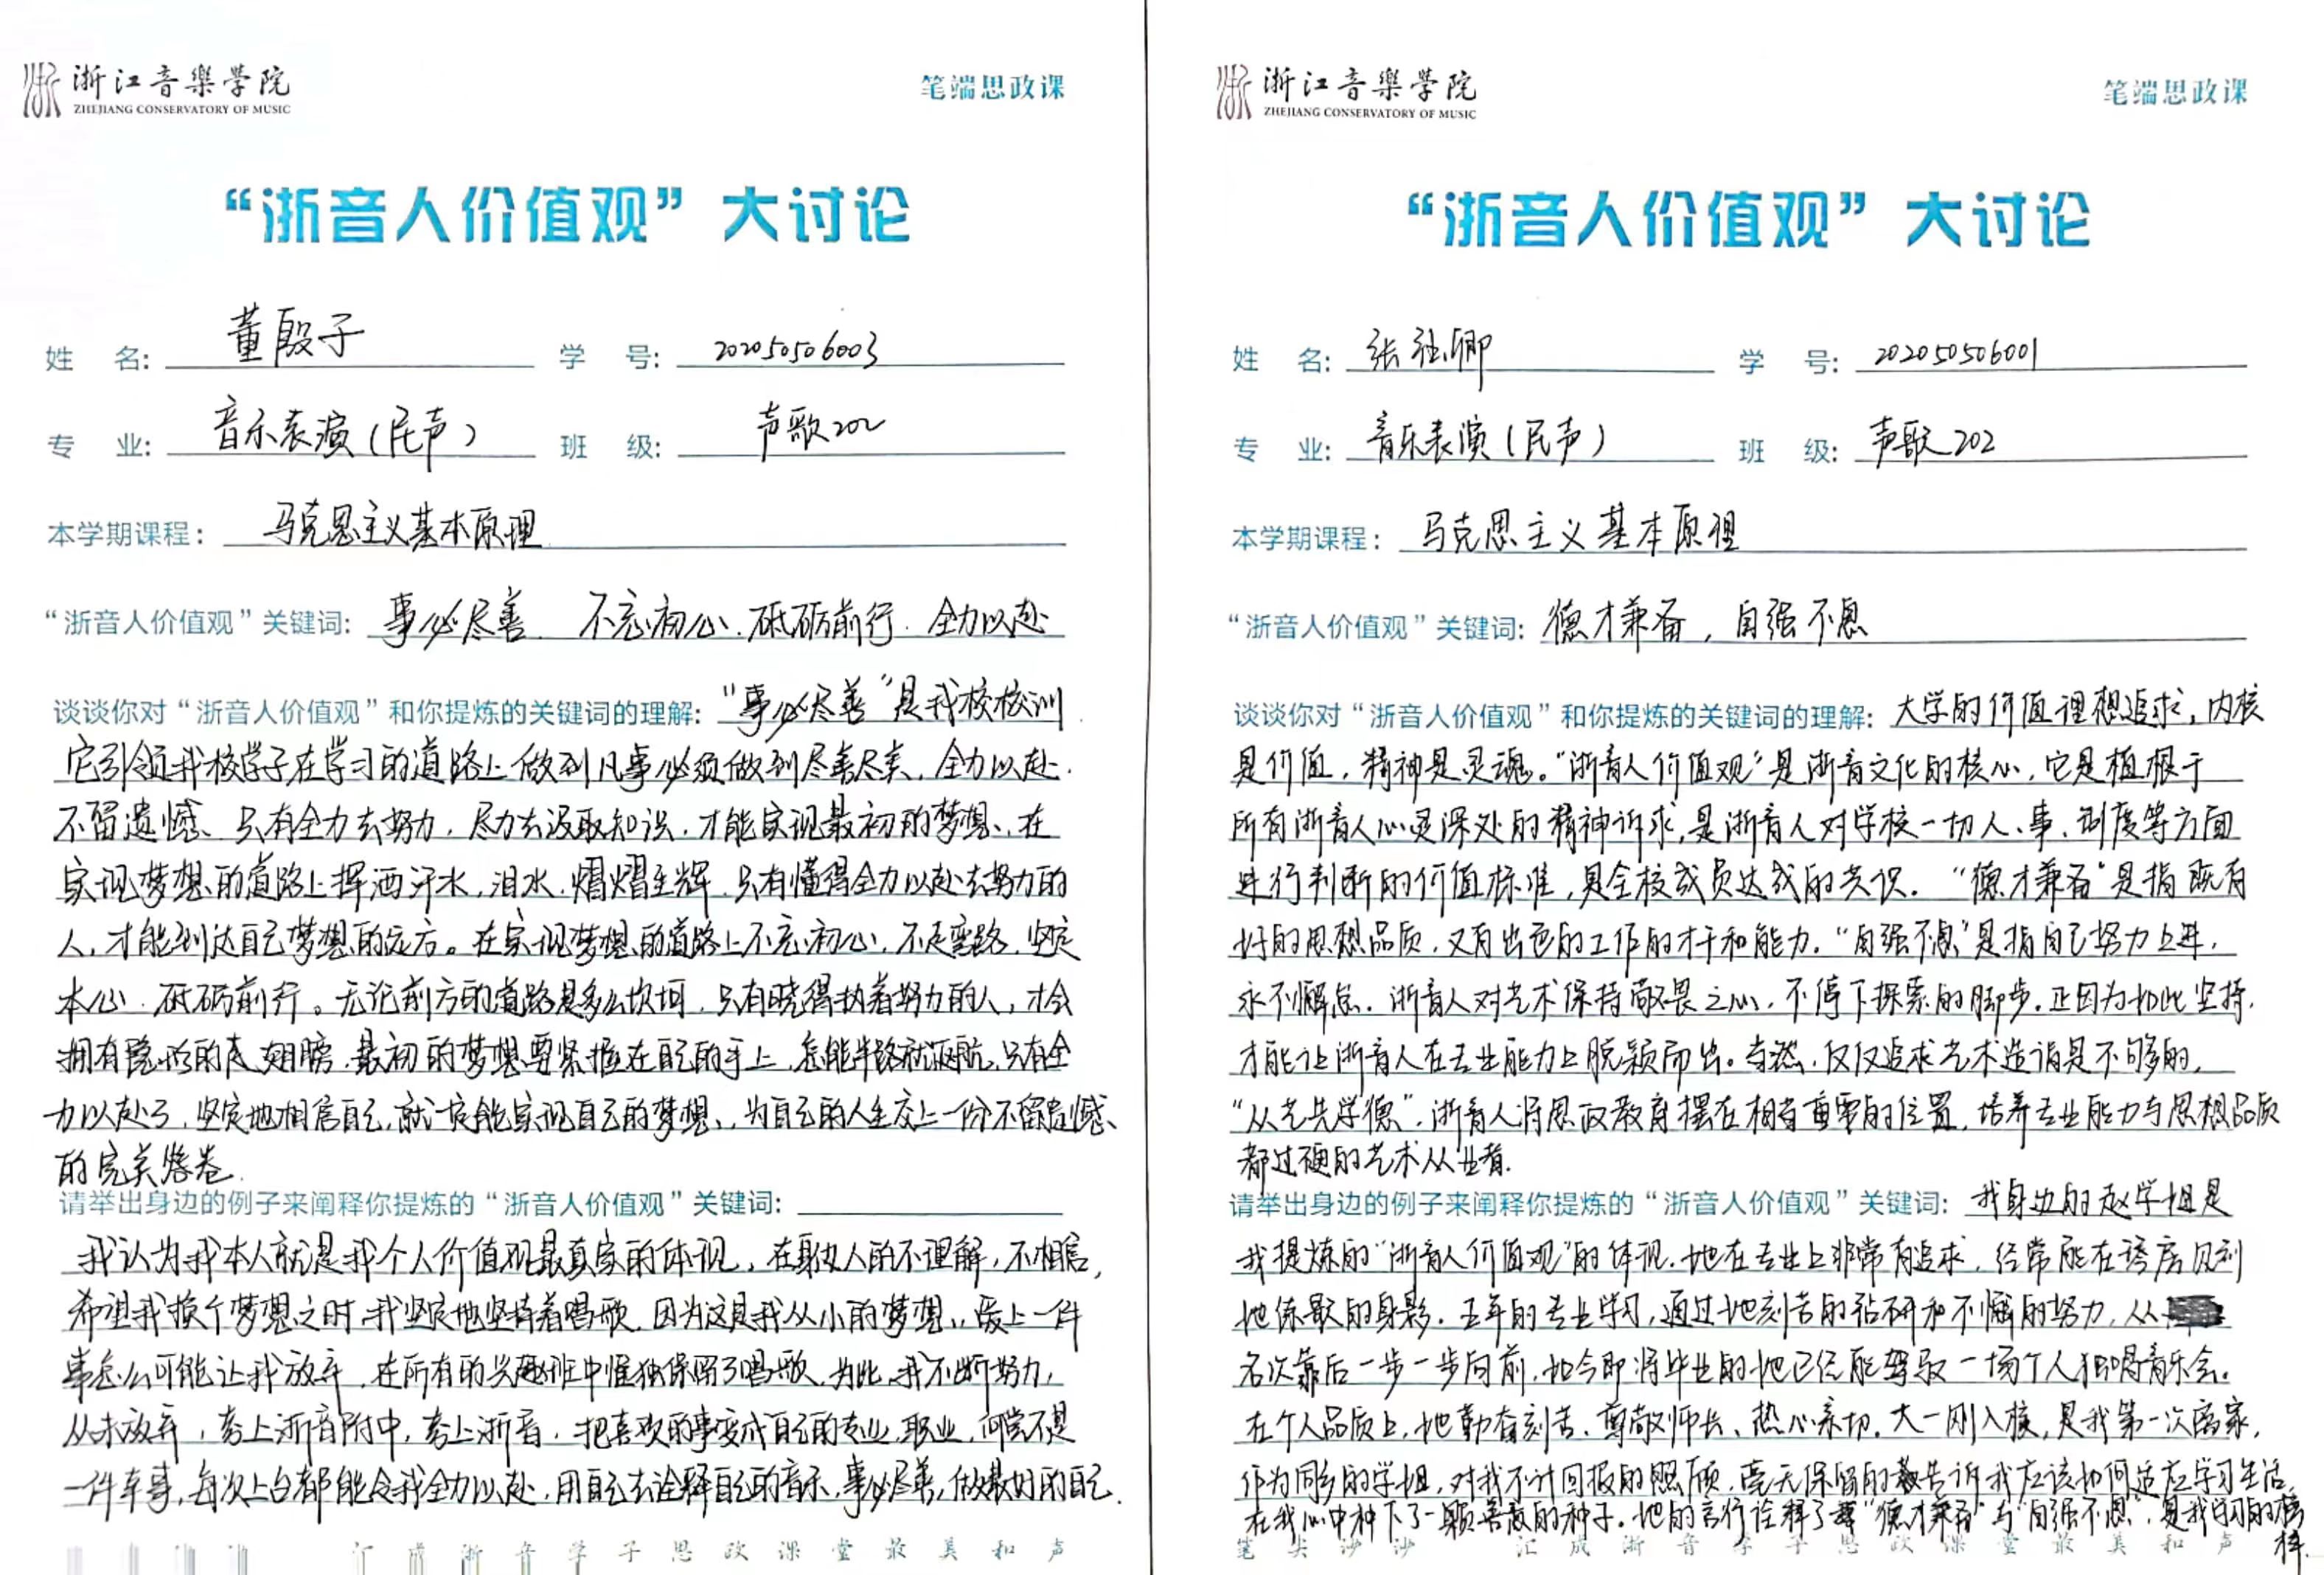 浙江音樂学院
ZHEJIANG CONSERVATORY OF MUSIC
笔端思政课
“浙音人价值观”大讨论
姓 名: 董殷子 学 号: 202050506003
专 业: 音乐表演(民声) 班 级: 声歌202
本学期课程: 马克思主义基本原理
“浙音人价值观”关键词: 事必尽善、不忘初心、砥砺前行、全力以赴
谈谈你对“浙音人价值观”和你提炼的关键词的理解: “事必尽善”是我校校训.
它引领我校学子在学习的道路上做到凡事必须做到尽善尽美,全力以赴.
不留遗憾、只有全力去努力,尽力去汲取知识,才能实现最初的梦想、在
实现梦想的道路上挥洒汗水,泪水,熠熠生辉.只有懂得全力以赴去努力的
人,才能到达自己梦想的远方。在实现梦想的道路上不忘初心,不走弯路,坚定
本心、砥砺前行。无论前方的道路是多么坎坷,只有晓得执着努力的人,才会
拥有隐形的翅膀,最初的梦想要紧握在自己的手上,怎能半路就返航,只有全
力以赴了,坚定地相信自己,就一定能实现自己的梦想、为自己的人生交上一份不留遗憾、
的完美答卷.
请举出身边的例子来阐释你提炼的“浙音人价值观”关键词:
我认为我本人就是我个人价值观最真实的体现,在身边人的不理解,不相信,
希望我换个梦想之时,我坚定地坚持着唱歌,因为这是我从小的梦想,爱上一件
事怎么可能让我放弃,在所有的兴趣班中惟独保留了唱歌,为此,我不断努力,
从未放弃,考上浙音附中,考上浙音,把喜欢的事变成自己的专业,职业,何尝不是
一件幸事,每次上台都能令我全力以赴,用自己去诠释自己的音乐,事必尽善,做最好的自己.
汇成浙音学子思政课堂最美和声
浙江音樂学院
ZHEJIANG CONSERVATORY OF MUSIC
笔端思政课
“浙音人价值观”大讨论
姓 名: 张 卿 学 号: 202050506001
专 业: 音乐表演(民声) 班 级: 声歌202
本学期课程: 马克思主义基本原理
“浙音人价值观”关键词: 德才兼备,自强不息
谈谈你对“浙音人价值观”和你提炼的关键词的理解: 大学的价值理想追求,内核
是价值,精神是灵魂。“浙音人价值观”是浙音文化的核心,它是植根于
所有浙音人心灵深处的精神诉求,是浙音人对学校一切人、事、制度等方面
进行判断的价值标准,是全校成员达成的共识.“德才兼备”是指既有
好的思想品质,又有出色的工作的才干和能力.“自强不息”是指自己努力上进,
永不懈怠.浙音人对艺术保持敬畏之心,不停下探索的脚步.正因为如此坚持,
才能让浙音人在专业能力上脱颖而出。当然,仅仅追求艺术造诣是不够的,
“从艺先学德”,浙音人将思政教育摆在相当重要的位置,培养专业能力与思想品质
都过硬的艺术从业者.
请举出身边的例子来阐释你提炼的“浙音人价值观”关键词: 我身边的赵学姐是
我提炼的“浙音人价值观”的体现.她在专业上非常有追求,经常能在琴房见到
她练歌的身影.五年的专业学习,通过她刻苦的钻研和不懈的努力,从
名次靠后一步一步向前,如今即将毕业的她已经能驾驭一场个人独唱音乐会。
在个人品质上,她勤奋刻苦、尊敬师长、热心亲切.大一刚入校,是我第一次离家,
作为同乡的学姐,对我不计回报的照顾,毫无保留的告诉我应该如何适应学习生活,
在我心中种下了一颗善意的种子.她的言行诠释了“德才兼备”与“自强不息”,是我学习的榜
样.
笔尖沙沙 汇成浙音学子思政课堂最美和声